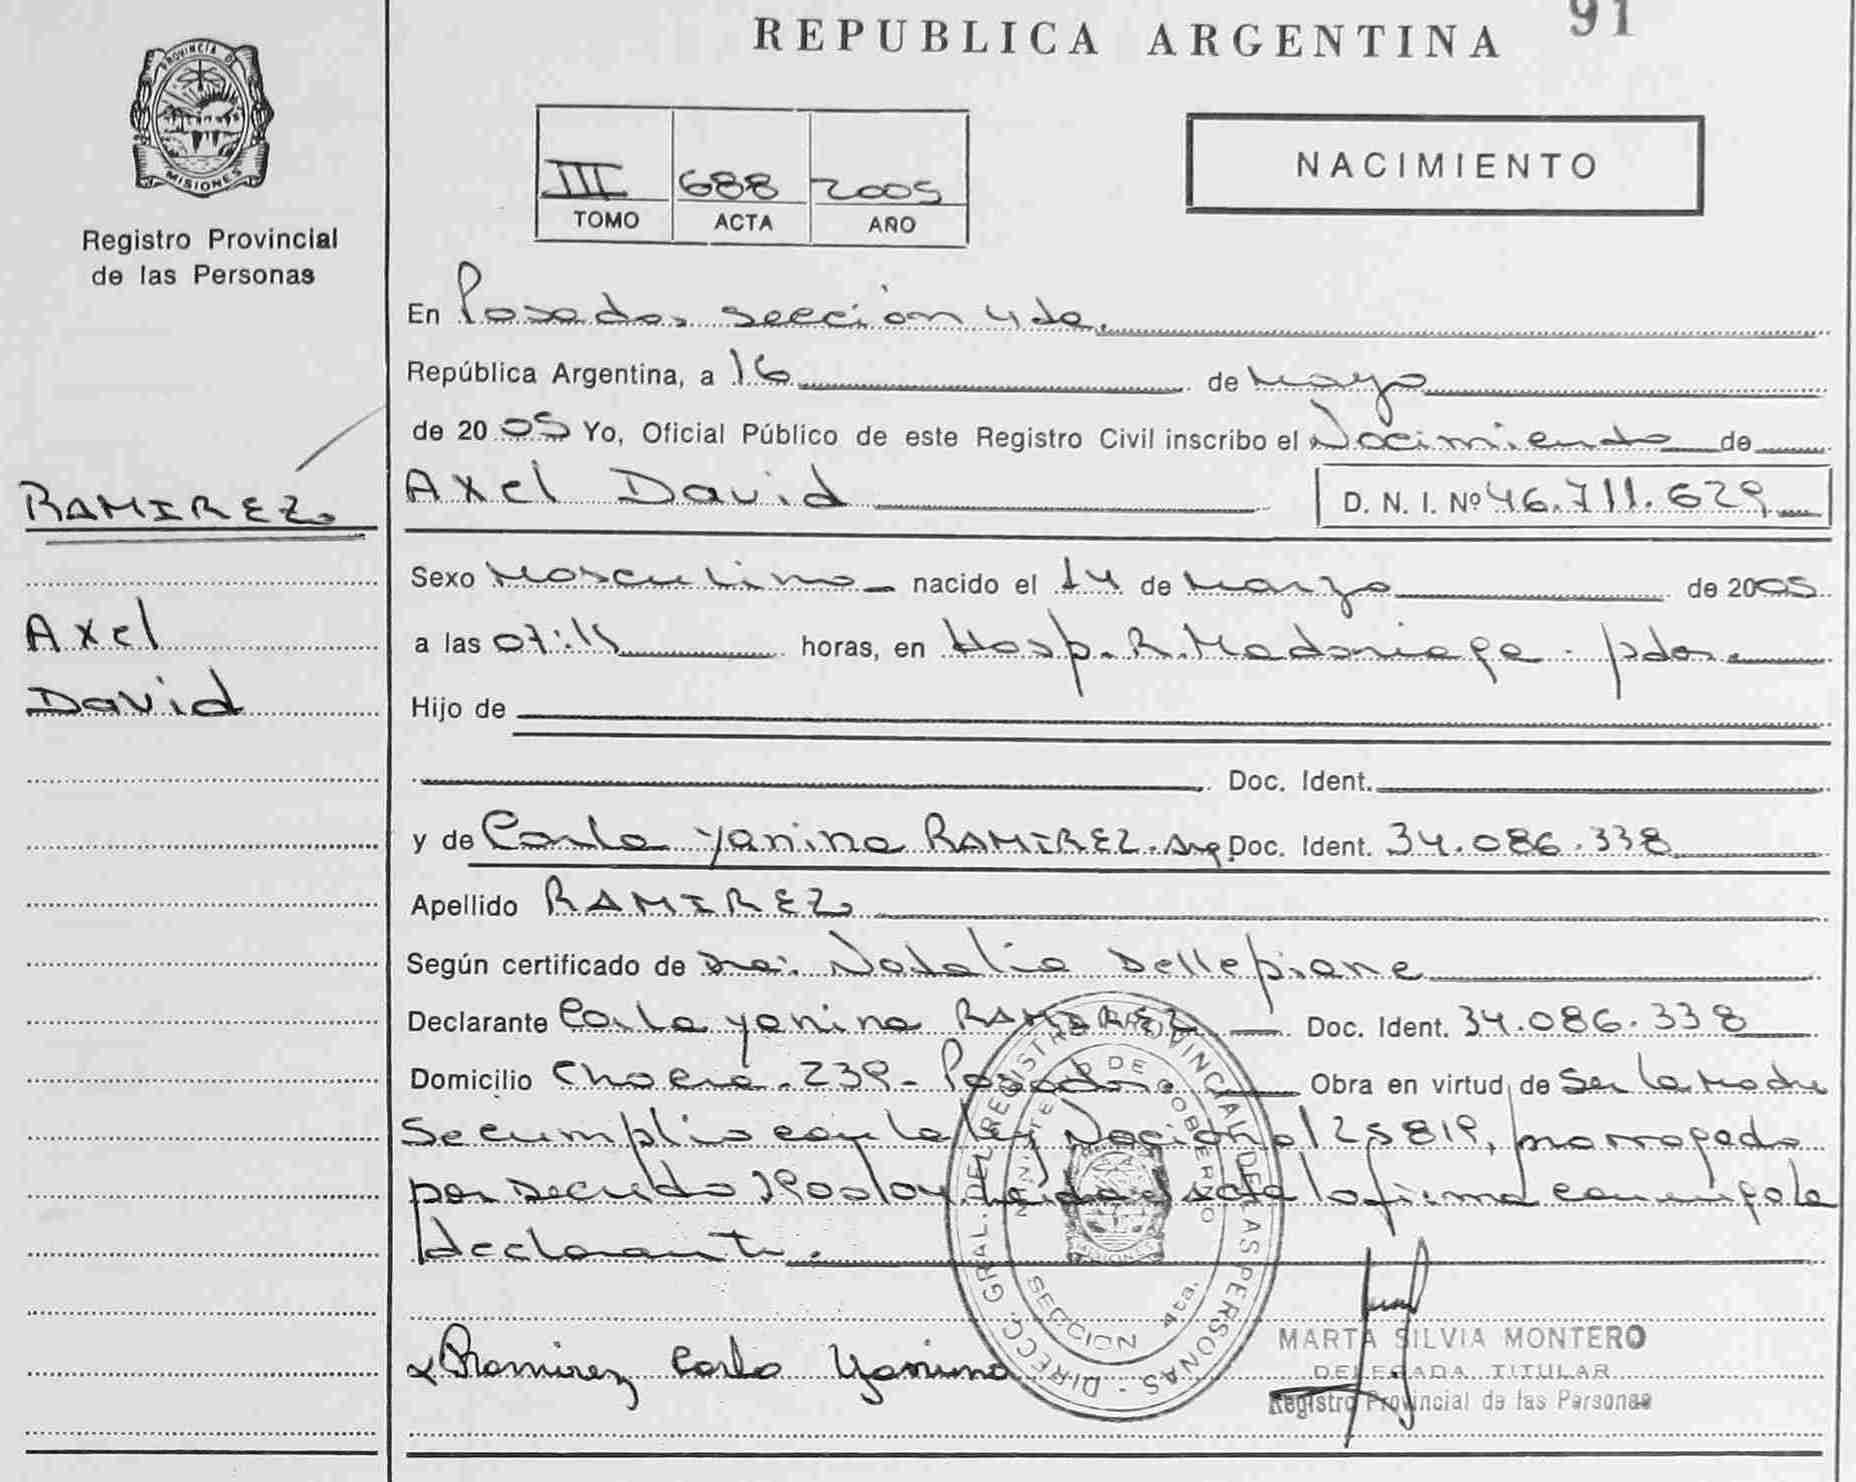 REPUBLICA ARGENTINA 91
PROVINCIA DE
MISIONES
Registro Provincial
de las Personas
III 688 2005
TOMO ACTA AÑO
NACIMIENTO
En Posadas sección 4ta.
República Argentina, a 16 de Mayo
de 2005 Yo, Oficial Público de este Registro Civil inscribo el Nacimiento de
RAMIREZ
Axel David D. N. I. Nº 46.711.629
Sexo Masculino nacido el 14 de Marzo de 2005
Axel
a las 07:15 horas, en Hosp. R. Madariaga - pdas.
David
Hijo de
Doc. Ident.
y de Carla Yanina RAMIREZ. Arg. Doc. Ident. 34.086.338
Apellido RAMIREZ
Según certificado de Dra: Natalia Dellepiane
Declarante Carla Yanina RAMIREZ Doc. Ident. 34.086.338
Domicilio 239 - Posadas Obra en virtud de Ser la Madre
Se cumplio con la ley Nacional 25819, prorrogada
por Decreto 1900/04 Leida el acta la firma conmigo la
declarante.
DIRECC. GRAL. DEL REGISTRO PROVINCIAL DE LAS PERSONAS
MINISTERIO DE GOBIERNO
MISIONES
SECCION 4ta.
x Ramirez Carla Yanina
MARTA SILVIA MONTERO
DELEGADA TITULAR
Registro Provincial de las Personas